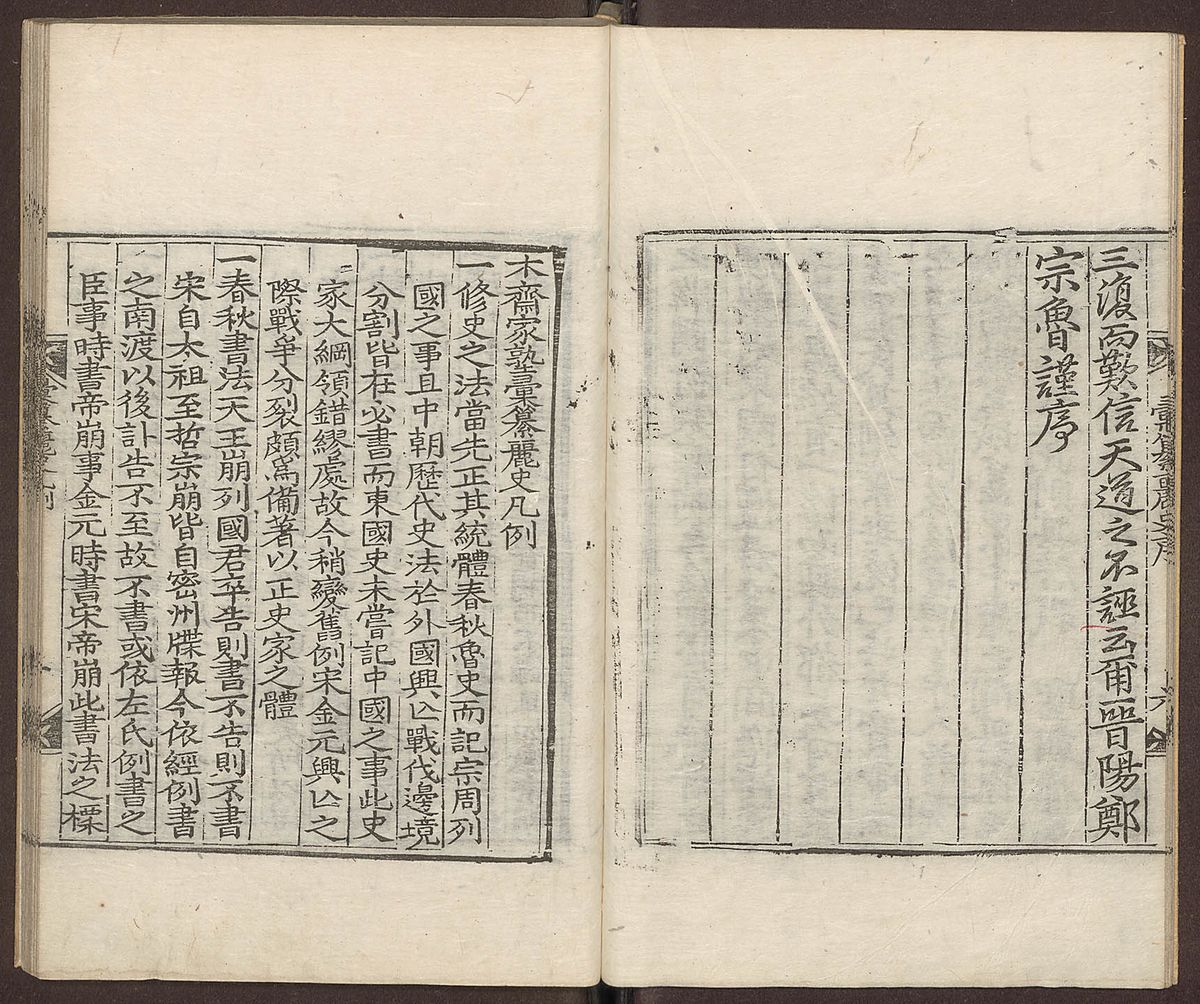 三復而歎信天道之不誣云爾晉陽鄭
宗魯謹序
彙纂麗史序
六
木齋家塾彙纂麗史凡例
一修史之法當先正其統體春秋魯史而記宗周列
國之事且中朝歷代史法於外國興亾戰伐邊境
分割皆在必書而東國史未嘗記中國之事此史
家大綱領錯繆處故今稍變舊例宋金元興亾之
際戰爭分裂頗爲備著以正史家之體
一春秋書法天王崩列國君卒告則書不告則不書
宋自太祖至哲宗崩皆自密州牒報今依經例書
之南渡以後訃告不至故不書或依左氏例書之
臣事時書帝崩事金元時書宋帝崩此書法之標